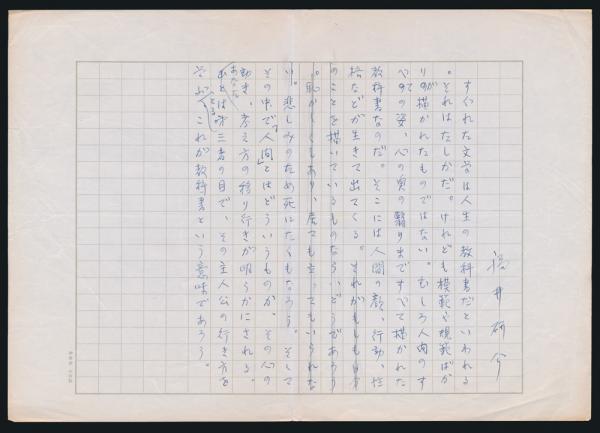 福井研介
すぐれた文学は人生の教科書だといわれる
。それはたしかだ。けれども模範や規範ばか
りが描かれたものではない。むしろ人間のす
べての姿、心の奥の翳りまですべて描かれた
教科書なのだ。そこには人間の顔、行動、性
格などが生きて出てくる。それがもしも自分
のことを描いているものならいどうであろう
。恥かしくもあり、居ても立ってもいられな
い。悲しみのため死にたくもなろう。そして
その中で「人間」とはどういうものか。その心の
動き、考え方の移り行きが明らかにされる。
あなたは第三者の目で、その主人公の行き方を
学ぶ。これが教科書という意味であろう。